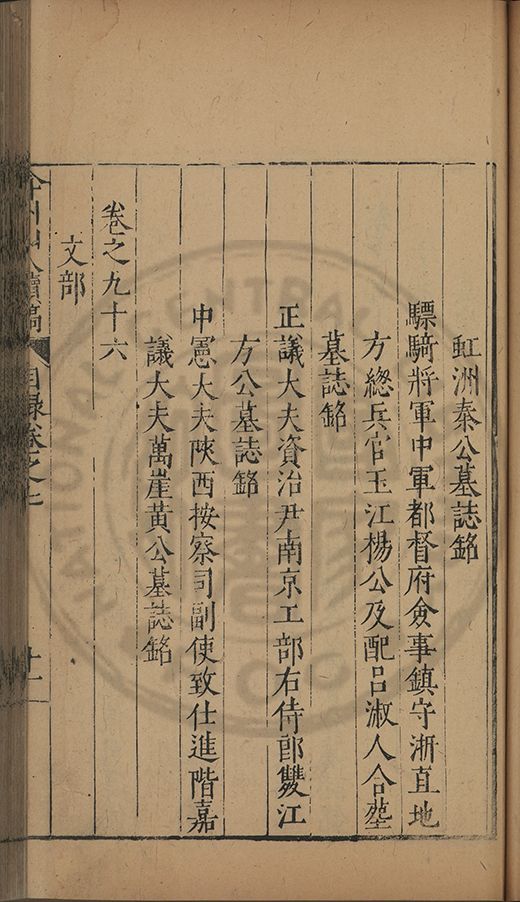 虹洲秦公墓誌銘
驃騎將軍中軍都督府僉事鎮守浙直地
方總兵官玉江楊公及配呂淑人合塟
墓誌銘
正議大夫資治尹南京工部右侍郎雙江
方公墓誌銘
中憲大夫陝西按察司副使致仕進階嘉
議大夫萬崖黃公墓誌銘
卷之九十六
文部
弇州山人續稿 目錄卷之上 十二